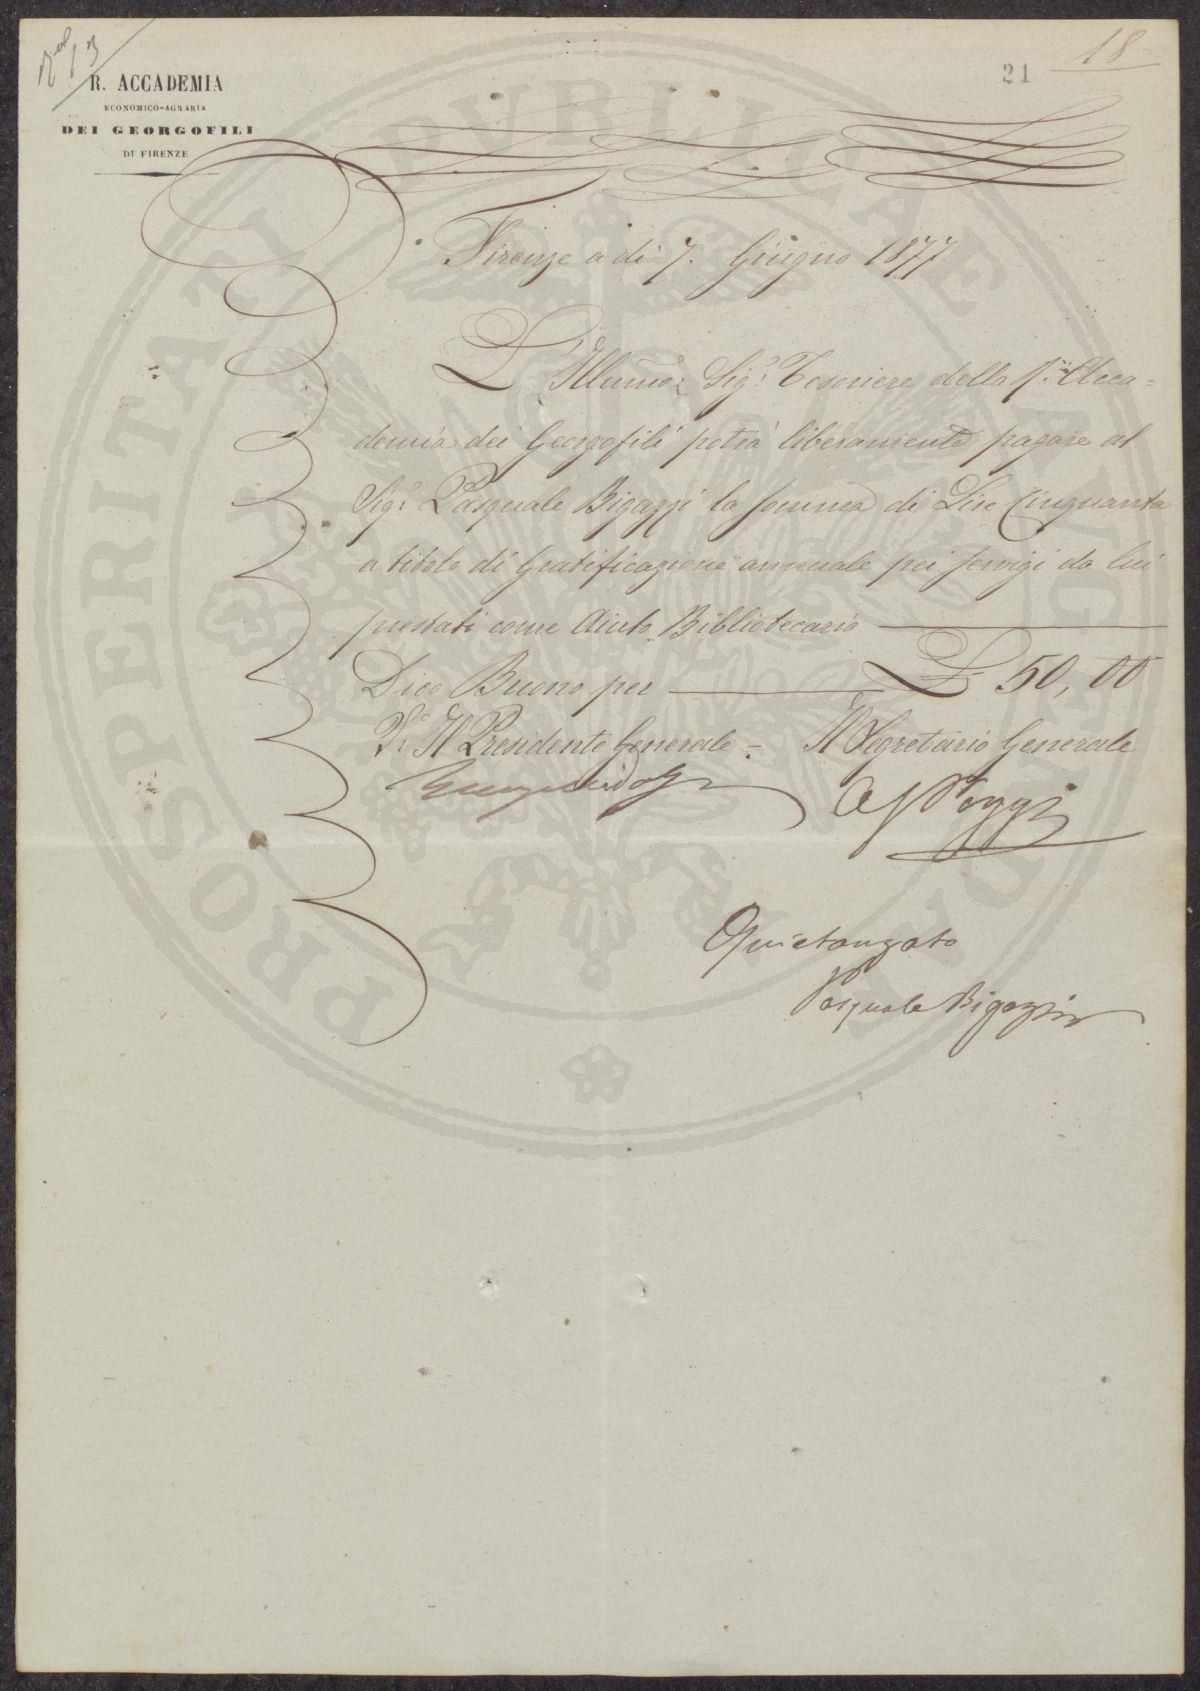 18
21
R. ACCADEMIA
ECONOMICO-AGRARIA
DEI GEORGOFILI
DI FIRENZE
Firenze a dì 7. Giugno 1877
L'Illumo: Sigr: Tesoriere della R. Acca=
demia dei Georgofili potrà liberamente pagare al
Sigr: Pasquale Bigazzi la somma di Lire Cinquanta
a titolo di Gratificazione annuale pei servigi da lui
prestati come Aiuto Bibliotecario
Dico Buono per L 50,00
Vo: Il Presidente Generale = Il Segretario Generale
Poggi
Quietanzato
Pasquale Bigazzi
PROSPERITATI PUBLICAE AUGENDAE